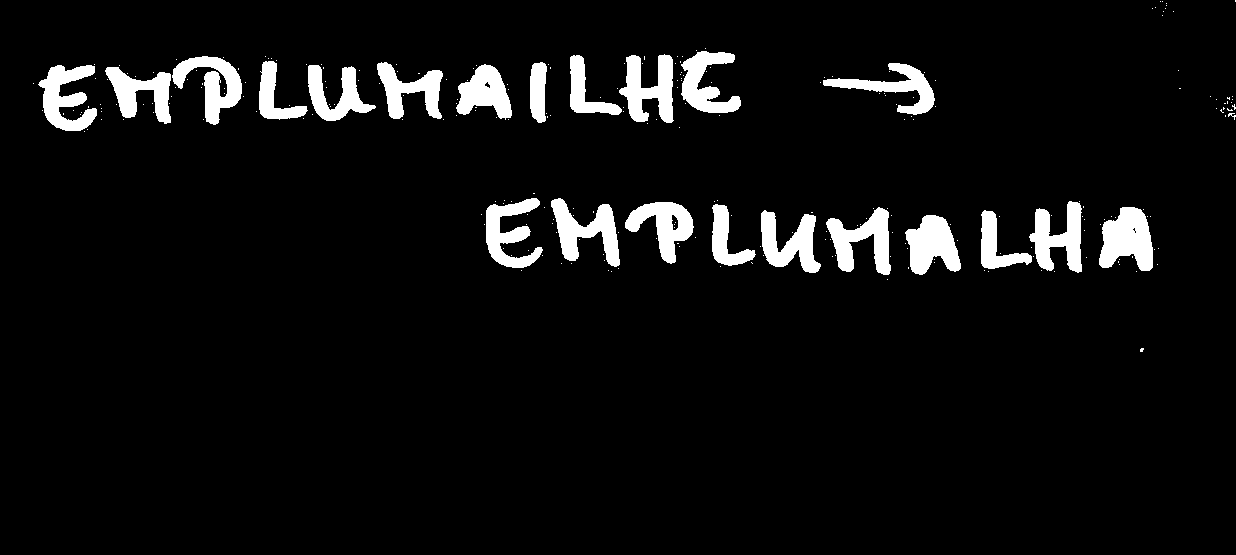 EMPLUMAILHE →
EMPLUMALHA